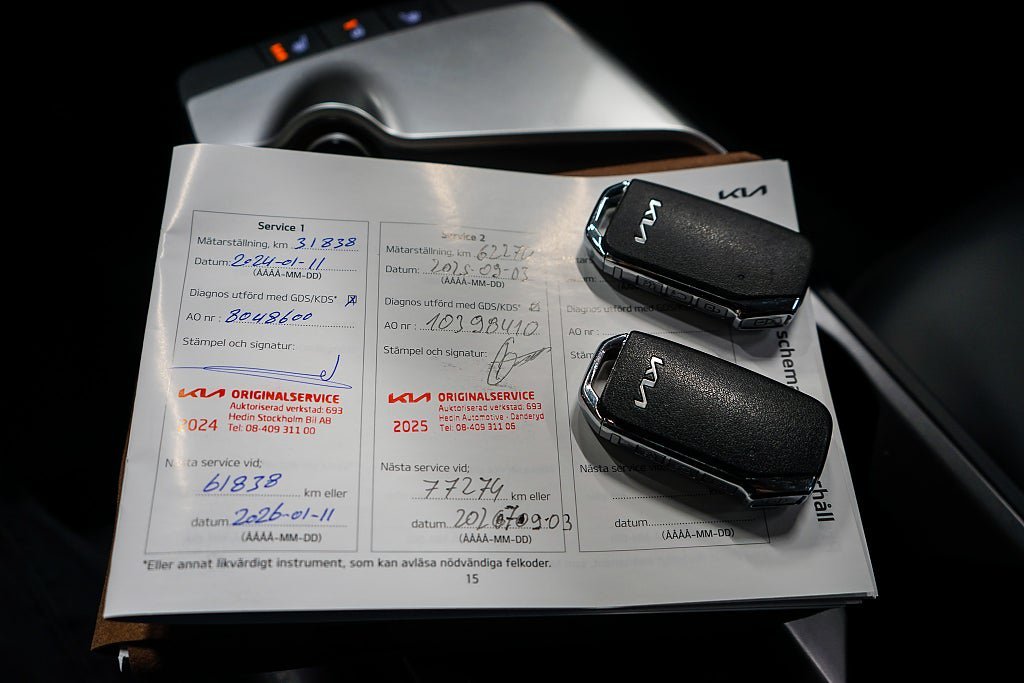 KIA
Service 1
Mätarställning, km 31838
Datum: 2024-01-11
(ÅÅÅÅ-MM-DD)
Diagnos utförd med GDS/KDS*
AO nr : 8048600
Stämpel och signatur:
KIA ORIGINALSERVICE
Auktoriserad verkstad: 693
Hedin Stockholm Bil AB
2024 Tel: 08-409 311 00
Nästa service vid;
61838 km eller
datum 2026-01-11
(ÅÅÅÅ-MM-DD)
Service 2
Mätarställning, km
Datum: 2025-09-03
(ÅÅÅÅ-MM-DD)
Diagnos utförd med GDS/KDS*
AO nr : 10398410
Stämpel och signatur:
KIA ORIGINALSERVICE
Auktoriserad verkstad: 693
Hedin Automotive - Danderyd
2025 Tel: 08-409 311 06
Nästa service vid;
77274 km eller
datum
(ÅÅÅÅ-MM-DD)
Diagnos utförd
AO nr :
Nästa service vid;
datum
(ÅÅÅÅ-MM-DD)
*Eller annat likvärdigt instrument, som kan avläsa nödvändiga felkoder.
15
KIA
KIA